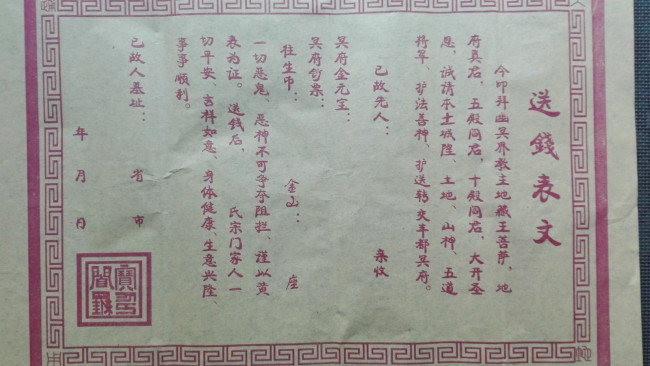 送錢表文
今叩拜幽冥界教主地藏王菩萨，地
府真君，五殿阎君，十殿阎君，大开圣
恩，诚请本土城隍、土地、山神、五道
将军、护法善神、护送转交丰都冥府。
已故先人： 亲收
冥府金元宝：
冥府钞票：
往生币： 金山： 座
一切恶鬼、恶神不可争夺阻拦、谨以黄
表为证。 送钱后， 氏宗门家人一
切平安、吉祥如意、身体健康、生意兴隆、
事事顺利。
已故人墓址： 省 市
年 月 日